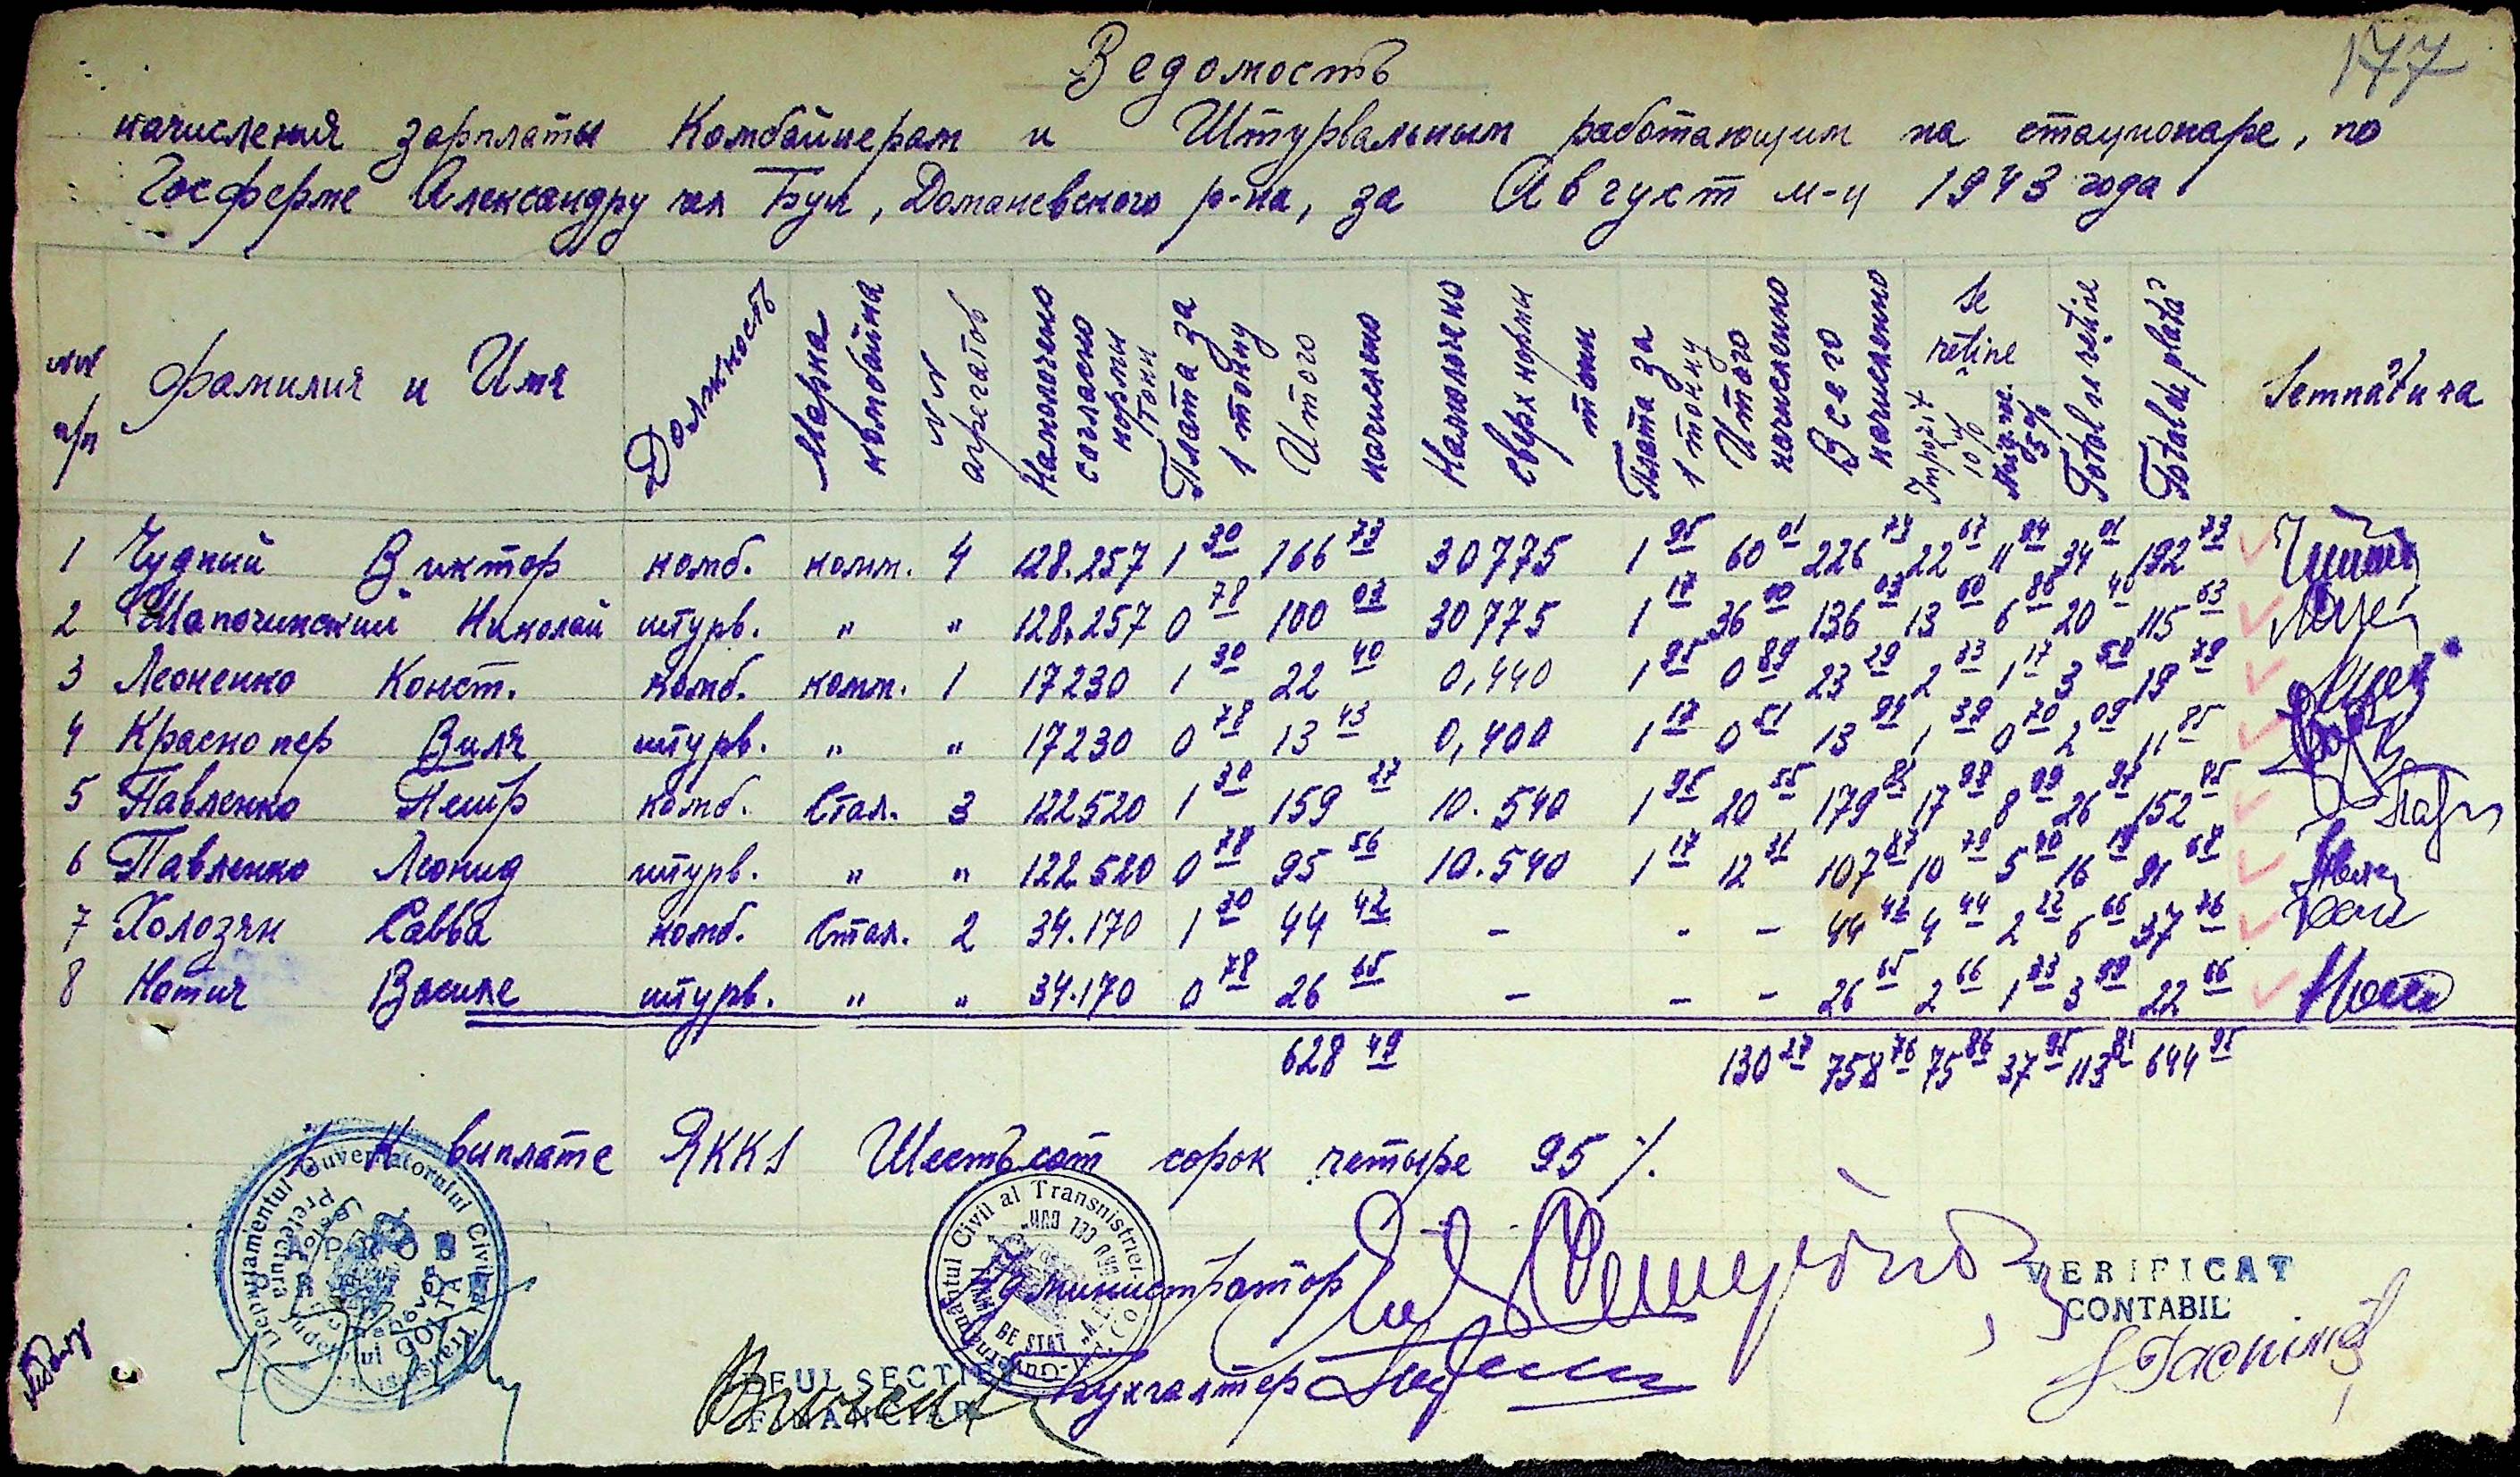 177
Ведомость
начисления зарплаты Комбайнерам и Штурвальным работающим на стационаре, по
Госферме Александру чел Бун, Доманевского р-на, за Август м-ц 1943 года
№№ п/п Фамилия и Имя Должность Марка комбайна №№ агрегатов Намолочено согласно нормы тонн Плата за 1 тонну Итого начислено Намолочено сверх нормы тонн Плата за 1 тонну Итого начисленно Всего начисленно Se reține Impozit 10% 5% Total reține Total de plată Semnătura
1 Чудний Виктор комб. комм. 4 128.257 1 30 166 73 30775 1 95 60 01 226 73 22 67 11 34 34 01 192 73
2 Шапочинский Николай штурв. " " 128.257 0 78 100 03 30775 1 17 36 00 136 03 13 60 6 80 20 40 115 63
3 Леоненко Конст. комб. комм. 1 17230 1 30 22 40 0,440 1 95 0 89 23 29 2 33 1 17 3 50 19 79
4 Краснопер Виля штурв. " " 17230 0 78 13 43 0,400 1 17 0 51 13 94 1 39 0 70 2 09 11 85
5 Павленко Петр комб. Стал. 3 122520 1 30 159 27 10.540 1 95 20 55 179 82 17 98 8 99 26 97 152 85
6 Павленко Леонид штурв. " " 122.520 0 78 95 56 10.540 1 17 12 31 107 87 10 79 5 40 16 19 91 68
7 Холозян Савва комб. Стал. 2 34.170 1 30 44 42 - - - 44 42 4 44 2 22 6 66 37 76
8 Нотич Василе штурв. " " 34.170 0 78 26 65 - - - 26 65 2 66 1 33 3 99 22 66
628 49 130 27 758 76 75 86 37 95 113 81 644 95
К выплате RKKS Шестьсот сорок четыре 95 %.
Departamentul Guvernatorului Civil
Prefectura
Județului Golta
Guvernământul Civil al Transnistriei
Администратор
VERIFICAT
CONTABIL
ȘEFUL SECȚIEI
FINANCIAR
Бухгалтер